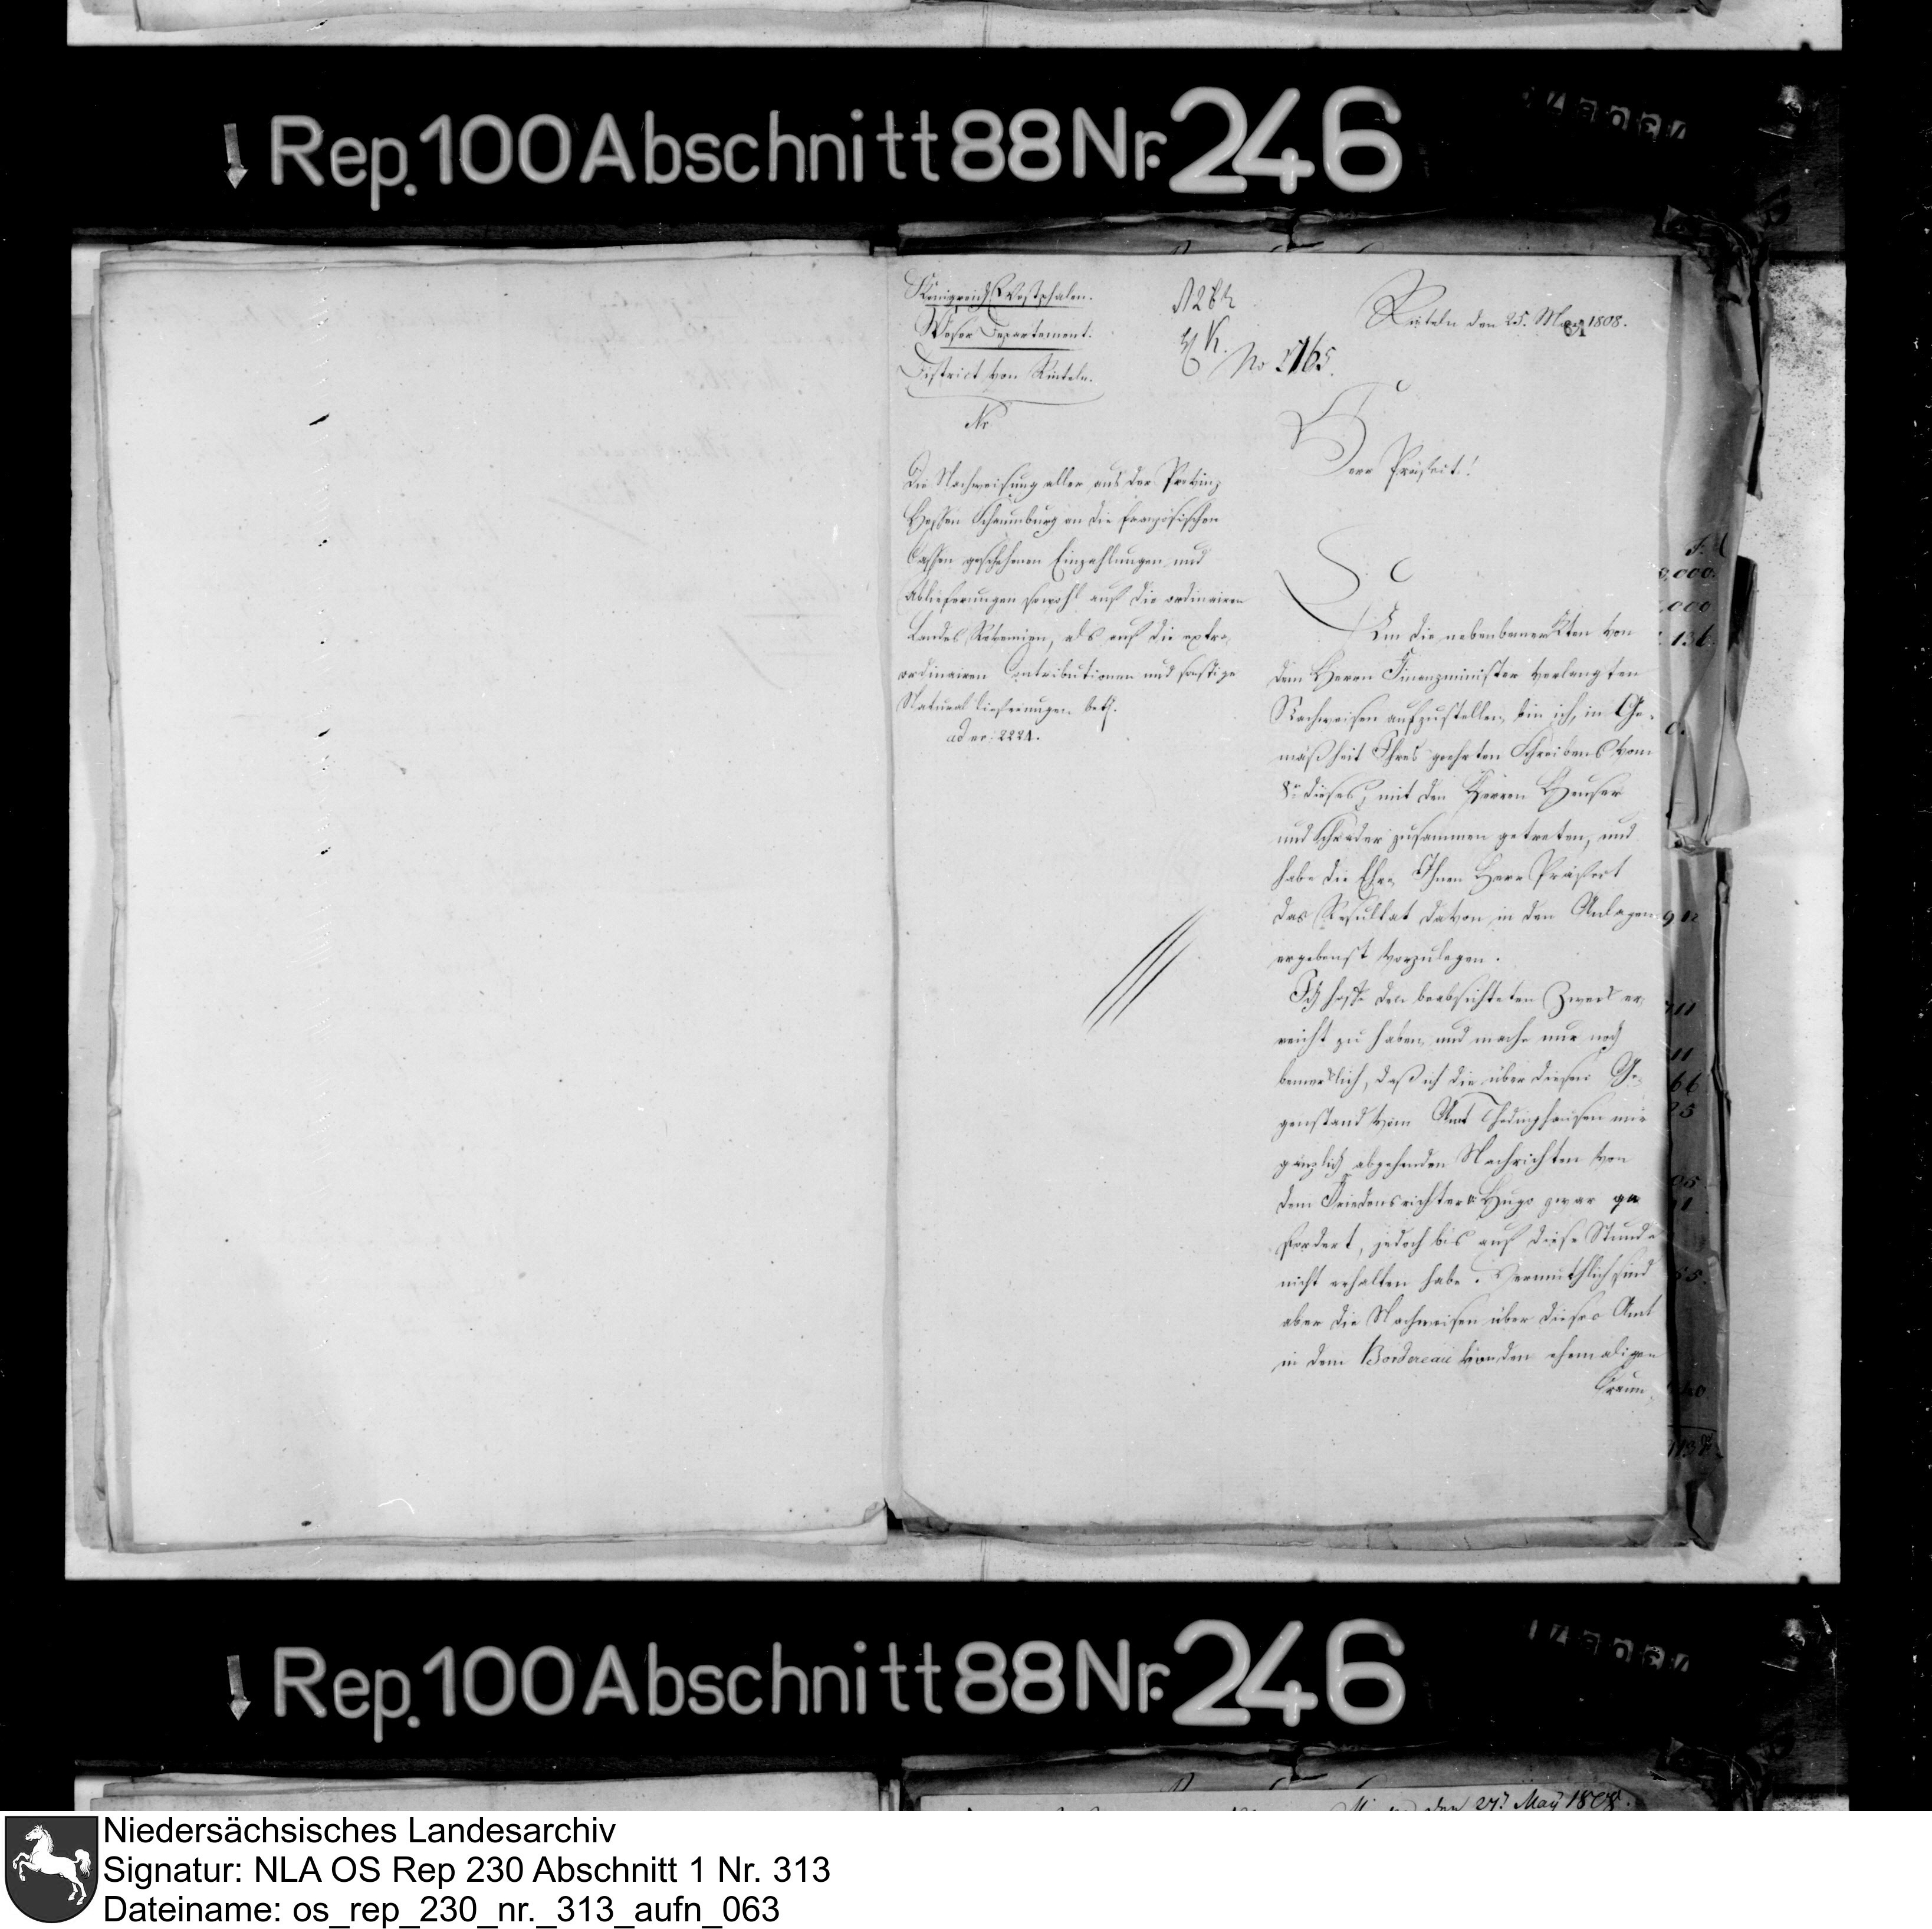 Rep. 100 Abschnitt 88 Nr. 246
Königreich Westphalen.
Weser Departement.
District von Rinteln.
Nr
No 2165.
Rinteln den 25. May 1808.
61
Die Nachweisung aller aus der Provinz
Hessen Schaumburg an die französischen
Cassen geschehenen Einzahlungen und
Ablieferungen sowohl auf die ordinairen
Landes Revenüen, als auf die extra,
ordinairen Contributionen und sonstige
Natural lieferungen betr.
ad nr: 2221.
Herr Präfect!
Um die nebenbemerkten von
dem Herrn Finanzminister verlangten
Nachweisen aufzustellen, bin ich, in Ge-
mäßheit Ihres geehrten Schreibens vom
8n dieses, mit den Herren Heuser
und Schrader zusammen getreten, und
habe die Ehre, Ihnen Herr Präfect
das Resultat davon in den Anlagen
ergebenst vorzulegen.
Ich hoffe den beabsichteten Zweck er,
reicht zu haben, und mache nur noch
bemerklich, daß ich die über diesen Ge-
genstand vom Amt Thedinghausen mir
gänzlich abgehenden Nachrichten von
dem Friedensrichter Hugo zwar ge
fordert, jedoch bis auf diese Stunde
nicht erhalten habe. Vermuthlich sind
aber die Nachweisen über dieses Amt
in dem Bordereau von den ehemaligen
Braun-
Rep. 100 Abschnitt 88 Nr. 246
den 27t May 1808.
Niedersächsisches Landesarchiv
Signatur: NLA OS Rep 230 Abschnitt 1 Nr. 313
Dateiname: os_rep_230_nr._313_aufn_063